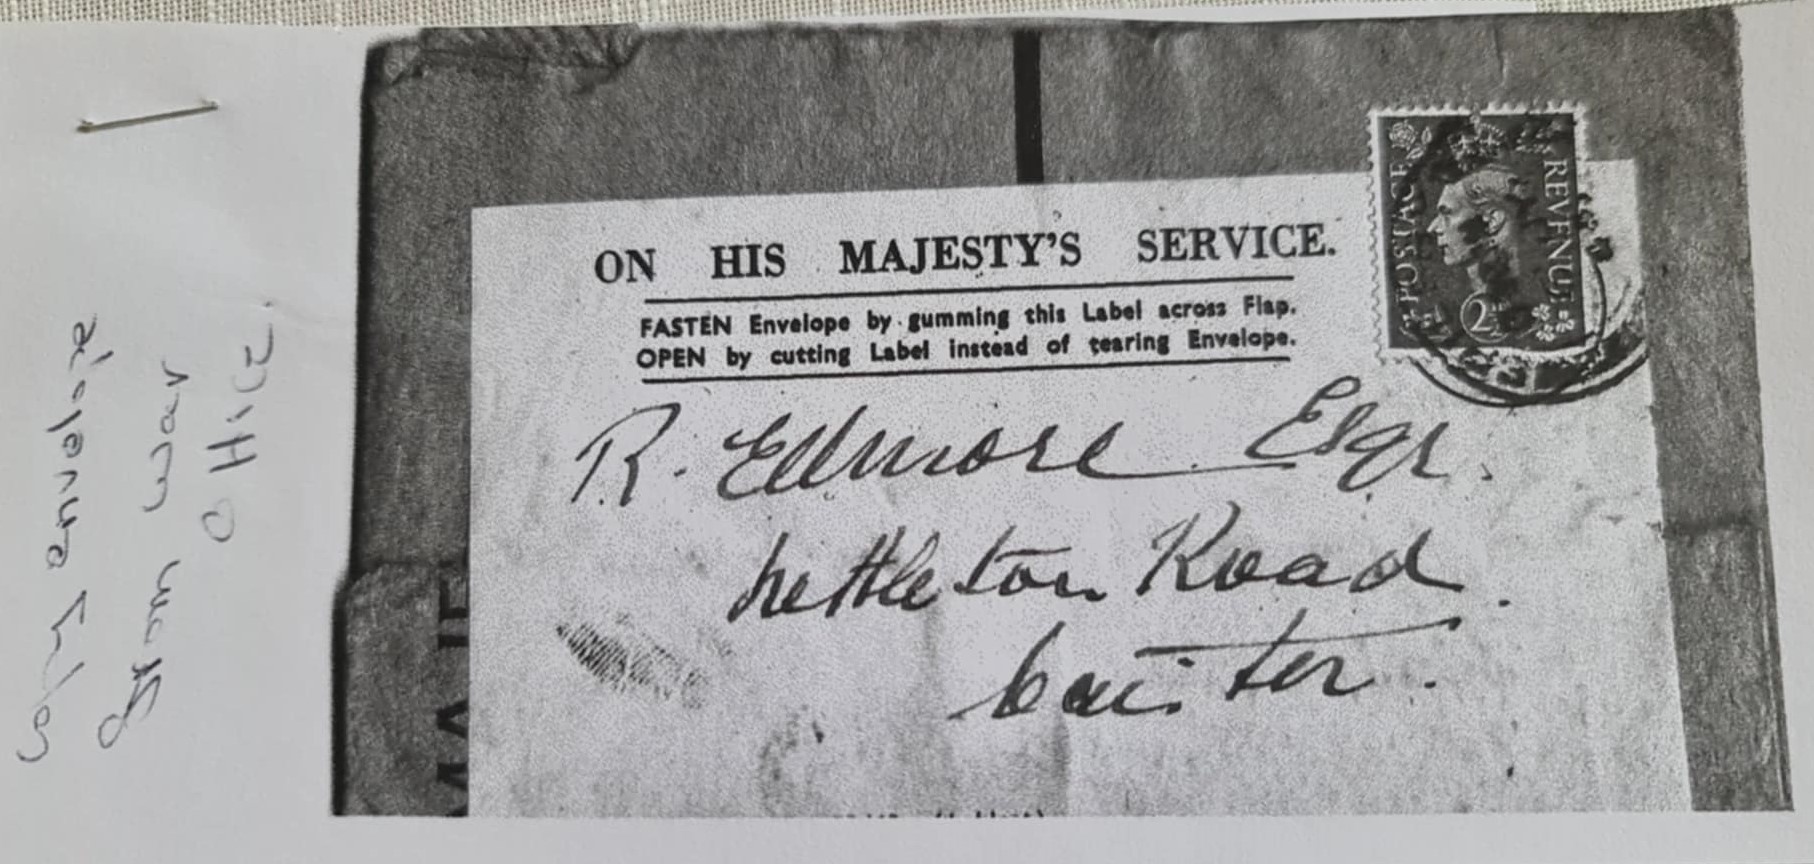 copy envelope
from war
office.
ON HIS MAJESTY'S SERVICE.
FASTEN Envelope by gumming this Label across Flap.
OPEN by cutting Label instead of tearing Envelope.
POSTAGE
REVENUE
2D
R. Edmore Esqr.
nettleton Road.
Caister.